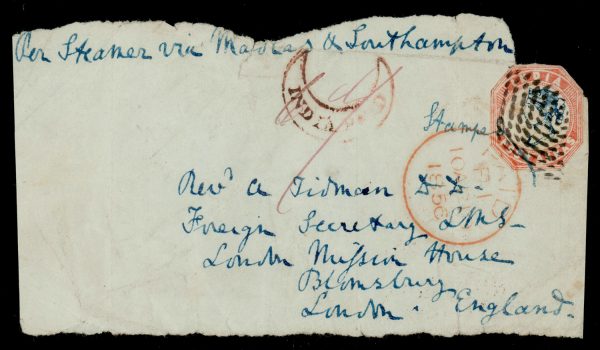 Per Steamer via Madras & Southampton
INDIA PAID
Stamped
INDIA
Revd A Tidman D D.
Foreign Secretary LMS
London Mission House
Blomsbury
London. England.
PAID
10 AP 10
1856